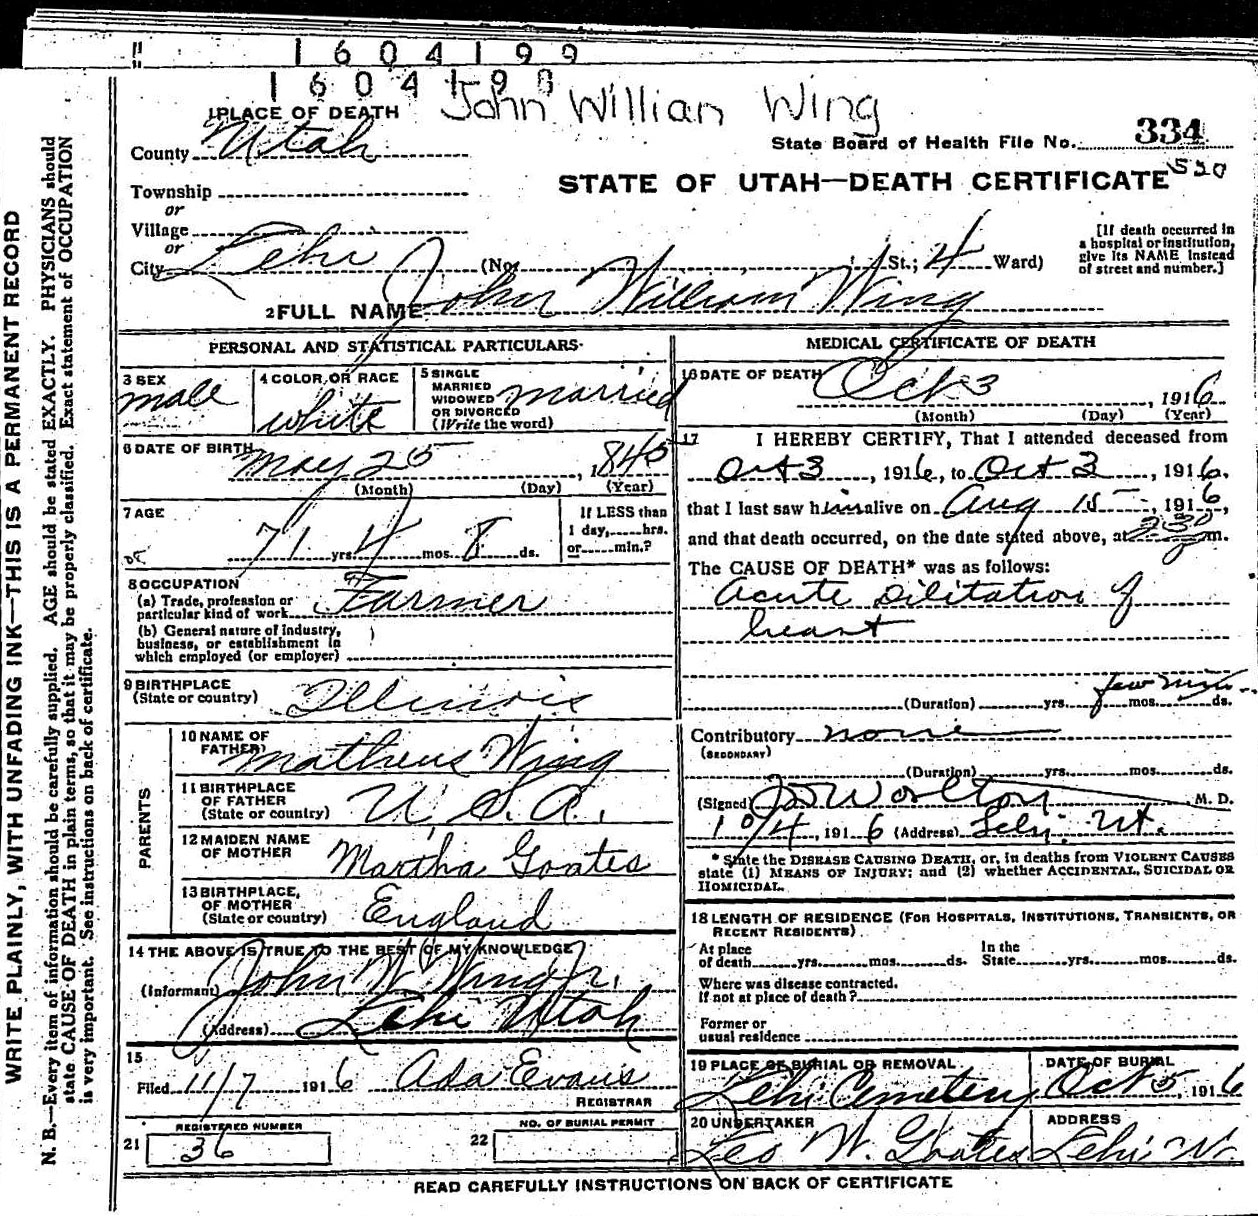 1604199
160419
John Willian Wing
1 PLACE OF DEATH
County Utah
State Board of Health File No. 334
530
STATE OF UTAH—DEATH CERTIFICATE
Township
or
Village
or
City Lehi (No. St.; 4 Ward)
[If death occurred in
a hospital or institution,
give its NAME instead
of street and number.]
2 FULL NAME John William Wing
PERSONAL AND STATISTICAL PARTICULARS
3 SEX
male
4 COLOR OR RACE
white
5 SINGLE
MARRIED
WIDOWED
OR DIVORCED
(Write the word)
married
6 DATE OF BIRTH
May 25, 1845
(Month) (Day) (Year)
7 AGE
71 yrs. 4 mos. 8 ds.
If LESS than
1 day,......hrs.
or......min.?
8 OCCUPATION
(a) Trade, profession or
particular kind of work Farmer
(b) General nature of industry,
business, or establishment in
which employed (or employer)
9 BIRTHPLACE
(State or country) Illinois
PARENTS
10 NAME OF
FATHER Matheus Wing
11 BIRTHPLACE
OF FATHER
(State or country) U.S.A.
12 MAIDEN NAME
OF MOTHER Martha Goates
13 BIRTHPLACE
OF MOTHER
(State or country) England
14 THE ABOVE IS TRUE TO THE BEST OF MY KNOWLEDGE
(Informant) John W. Wing Jr.
(Address) Lehi Utah
15
Filed 11/7 1916 Ada Evans
REGISTRAR
REGISTERED NUMBER
21 36
NO. OF BURIAL PERMIT
22
MEDICAL CERTIFICATE OF DEATH
16 DATE OF DEATH
Oct 3, 1916
(Month) (Day) (Year)
17 I HEREBY CERTIFY, That I attended deceased from
Oct 3, 1916, to Oct 3, 1916.
that I last saw him alive on Aug 15, 1916,
and that death occurred, on the date stated above, at 230 m.
The CAUSE OF DEATH* was as follows:
Acute Dilitation of
heart
few min.
(Duration) yrs. mos. ds.
Contributory none
(SECONDARY)
(Duration) yrs. mos. ds.
(Signed) Worlton M. D.
10/4, 1916 (Address) Lehi Ut.
* State the DISEASE CAUSING DEATH, or, in deaths from VIOLENT CAUSES
state (1) MEANS OF INJURY; and (2) whether ACCIDENTAL, SUICIDAL OR
HOMICIDAL.
18 LENGTH OF RESIDENCE (FOR HOSPITALS, INSTITUTIONS, TRANSIENTS, OR
RECENT RESIDENTS)
At place
of death yrs. mos. ds.
In the
State yrs. mos. ds.
Where was disease contracted.
If not at place of death?
Former or
usual residence
19 PLACE OF BURIAL OR REMOVAL
Lehi Cemetery
DATE OF BURIAL
Oct 5, 1916
20 UNDERTAKER
Leo W. Goates
ADDRESS
Lehi Ut.
READ CAREFULLY INSTRUCTIONS ON BACK OF CERTIFICATE
WRITE PLAINLY, WITH UNFADING INK—THIS IS A PERMANENT RECORD
N. B.—Every item of information should be carefully supplied. AGE should be stated EXACTLY. PHYSICIANS should
state CAUSE OF DEATH in plain terms, so that it may be properly classified. Exact statement of OCCUPATION
is very important. See instructions on back of certificate.